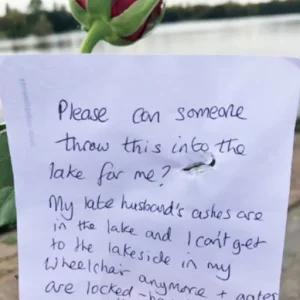 Please can someone
throw this into the
lake for me?
My late husband's ashes are
in the lake and I can't get
to the lakeside in my
wheelchair anymore + gates
are locked -